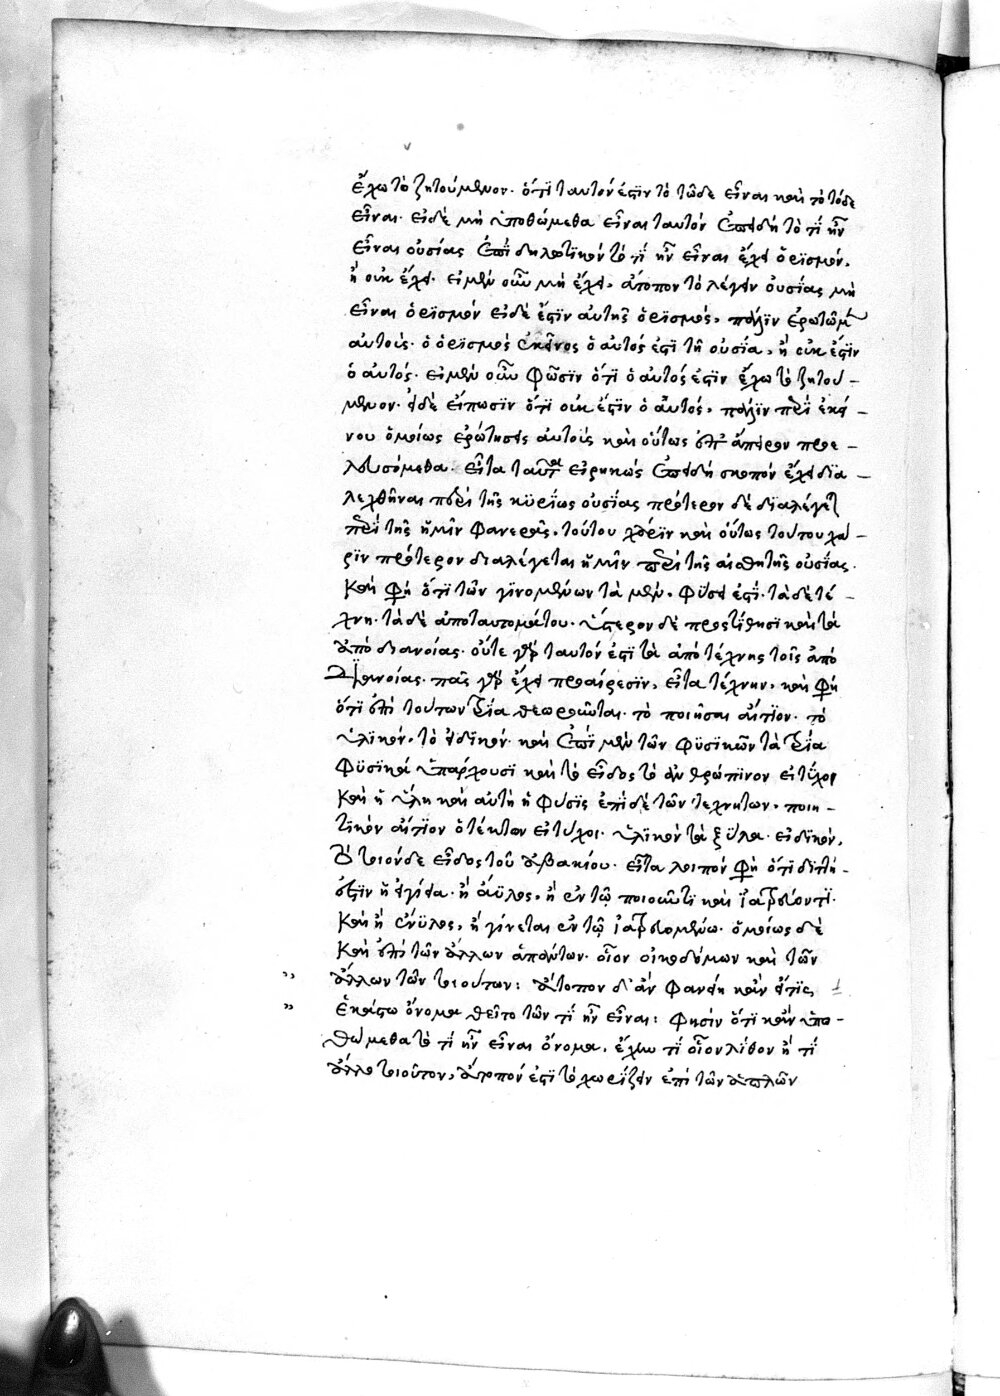 ἔχω τὸ ζητούμενον. ὅτι ταυτόν ἐστιν τὸ τῶδε εἶναι καὶ τὸ τόδε
εἶναι. εἰ δὲ μὴ ὑποθώμεθα εἶναι ταυτὸν ἐπειδὴ τὸ τί ἦν
εἶναι οὐσίας ἐστὶ δηλωτικὸν τὸ τί ἦν εἶναι ἔχει ὁρισμόν.
ἢ οὐκ ἔχει. εἰ μὲν οὖν μὴ ἔχει, ἄτοπον τὸ λέγειν οὐσίας μὴ
εἶναι ὁρισμόν εἰ δὲ ἔστιν αὐτῆς ὁρισμός, πάλιν ἐρωτῶμεν
αὐτούς. ὁ ὁρισμὸς ἐκεῖνος ὁ αὐτός ἐστι τῆ οὐσία, ἢ οὐκ ἔστιν
ὁ αὐτός. εἰ μὲν οὖν φῶσιν ὅτι ὁ αὐτός ἐστιν ἔχω τὸ ζητού-
μενον. εἰ δὲ εἴπωσιν ὅτι οὐκ ἔστιν ὁ αὐτός, πάλιν περὶ ἐκεί-
νου ὁμοίως ἐρώτησις αὐτοῖς καὶ οὕτως ἐπ' ἄπειρον προε-
λευσόμεθα. εἶτα ταῦτα εἰρηκὼς ἐπειδὴ σκοπὸν ἔχει δια-
λεχθῆναι περὶ τῆς κυρίως οὐσίας πρότερον δὲ διαλέγεται
περὶ τῆς ἡμῖν φανερᾶς, τούτου χάριν καὶ οὕτως τούτου χά-
ριν πρότερον διαλέγεται ἡμῖν περὶ τῆς αἰσθητῆς οὐσίας.
καὶ φησὶ ὅτι τῶν γινομένων τὰ μὲν φύσει ἐστί. τὰ δὲ τέ-
χνη. τὰ δὲ ἀπὸ ταυτομάτου. ὕστερον δὲ προστίθησι καὶ τὰ
ἀπὸ διανοίας. οὔτε γὰρ ταυτόν ἐστι τὰ ἀπὸ τέχνης τοῖς ἀπὸ
διανοίας. πᾶς γὰρ ἔχει προαίρεσιν, εἶτα τέχνην, καὶ φησὶ
ὅτι ἐπὶ τούτων τρία θεωροῦνται. τὸ ποιῆσαι αἴτιον. τὸ
ὑλικόν. τὸ εἰδικόν. καὶ ἐπὶ μὲν τῶν φυσικῶν τὰ τρία
φυσικὰ ὑπάρχουσι καὶ τὸ εἶδος τὸ ἀνθρώπινον εἰ τύχοι
καὶ ἡ ὕλη καὶ αὐτὴ ἡ φύσις ἐπὶ δὲ τῶν τεχνητῶν. ποιη-
τικὸν αἴτιον ὁ τέκτων εἰ τύχοι. ὑλικὸν τὰ ξύλα. εἰδικὸν,
τὸ τοιόνδε εἶδος τοῦ ἀβακίου. εἶτα λοιπὸν φησὶ ὅτι διττή
ἐστιν ἡ ὑγίεια. ἢ ἄϋλος, ἡ ἐν τῷ ποιοῦντι καὶ ἰατρεύοντι.
καὶ ἡ ἔνϋλος, ἡ γίνεται ἐν τῷ ἰατρευομένω. ὁμοίως δὲ
καὶ ἐπὶ τῶν ἄλλων ἁπάντων. οἷον οἰκοδόμων καὶ τῶν
ἄλλων τῶν τοιούτων: ἄτοπον δ' ἂν φανείη κἂν εἴ τις
ἑκάστω ὄνομα θεῖτο τῶν τί ἦν εἶναι: φησὶν ὅτι κἂν ὑπο-
θώμεθα τὸ τί ἦν εἶναι ὄνομα, ἔχω τί οἷον λίθον ἢ τί
ἄλλο τοιοῦτον, ἄτοπόν ἐστι τὸ χωρίζειν ἐπὶ τῶν ἁπλῶν